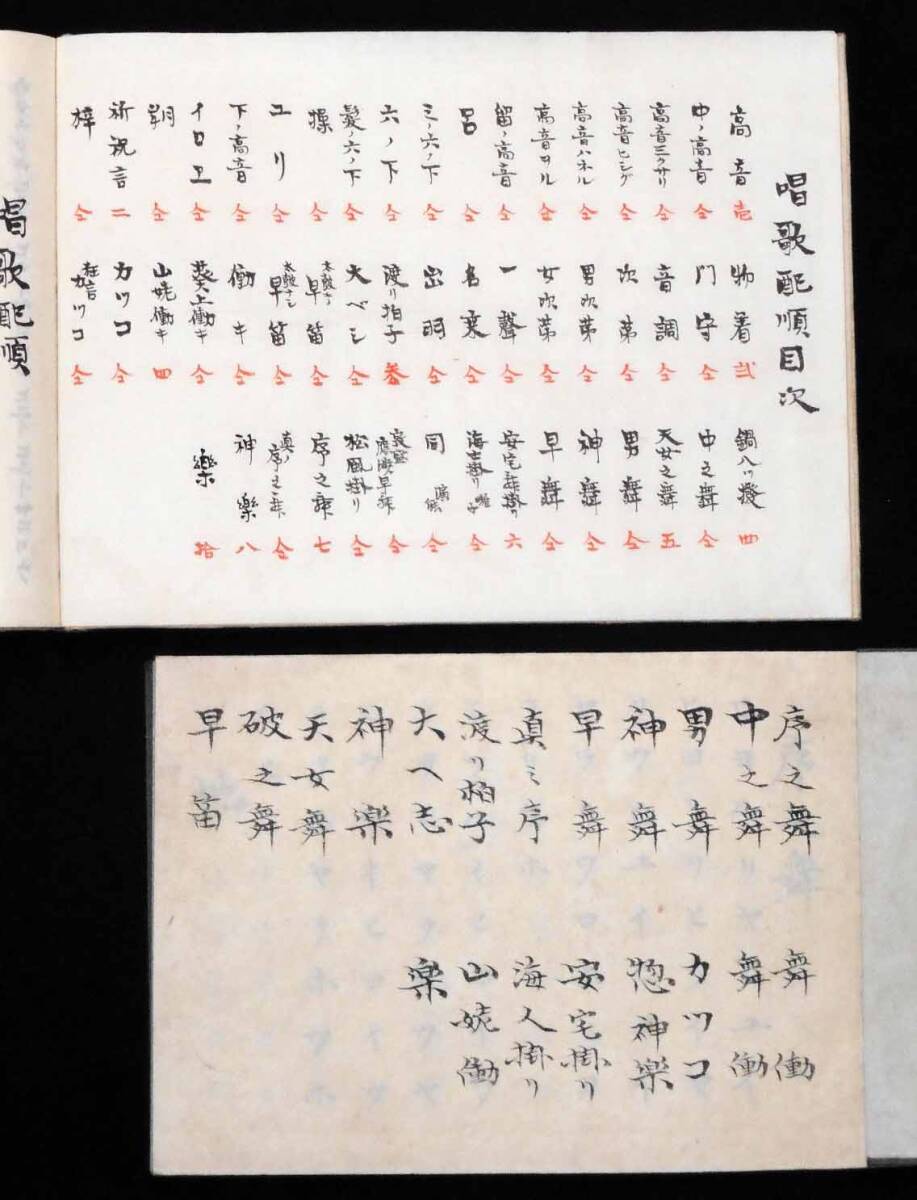 唱歌配順目次
高音 壱
中ノ高音 仝
高音三クサリ 仝
高音ヒシグ 仝
高音ハネル 仝
高音ヲル 仝
留ノ高音 仝
呂 仝
ミノ六ノ下 仝
六ノ下 仝
髪ノ六ノ下 仝
操 仝
ユリ 仝
下ノ高音 仝
イロヱ 仝
仝
祈祝言 二
梓 仝
物着 弐
門守 仝
音調 仝
次第 仝
男次第 仝
女次第 仝
一聲 仝
名乗 仝
出羽 仝
渡リ拍子 参
大ベシ 仝
早笛 仝
太鼓ナシ 早笛 仝
働キ 仝
葵上働キ 仝
山姥働キ 四
カツコ 仝
狂言カツコ 仝
鍋八ツ撥 四
中之舞 仝
天女之舞 五
男舞 仝
神舞 仝
早舞 仝
安宅舞掛リ 六
海士掛リ 仝
同 仝
早舞 仝
松風掛リ 仝
序之舞 七
真ノ序之舞 仝
神樂 八
樂 拾
唱歌配順
序之舞
中之舞
男舞
神舞
早舞
真之序
渡リ拍子
大ヘ志
神楽
天女舞
破之舞
早笛
舞働
舞働
カツコ
惣神楽
安宅掛リ
海人掛リ
山姥働
楽